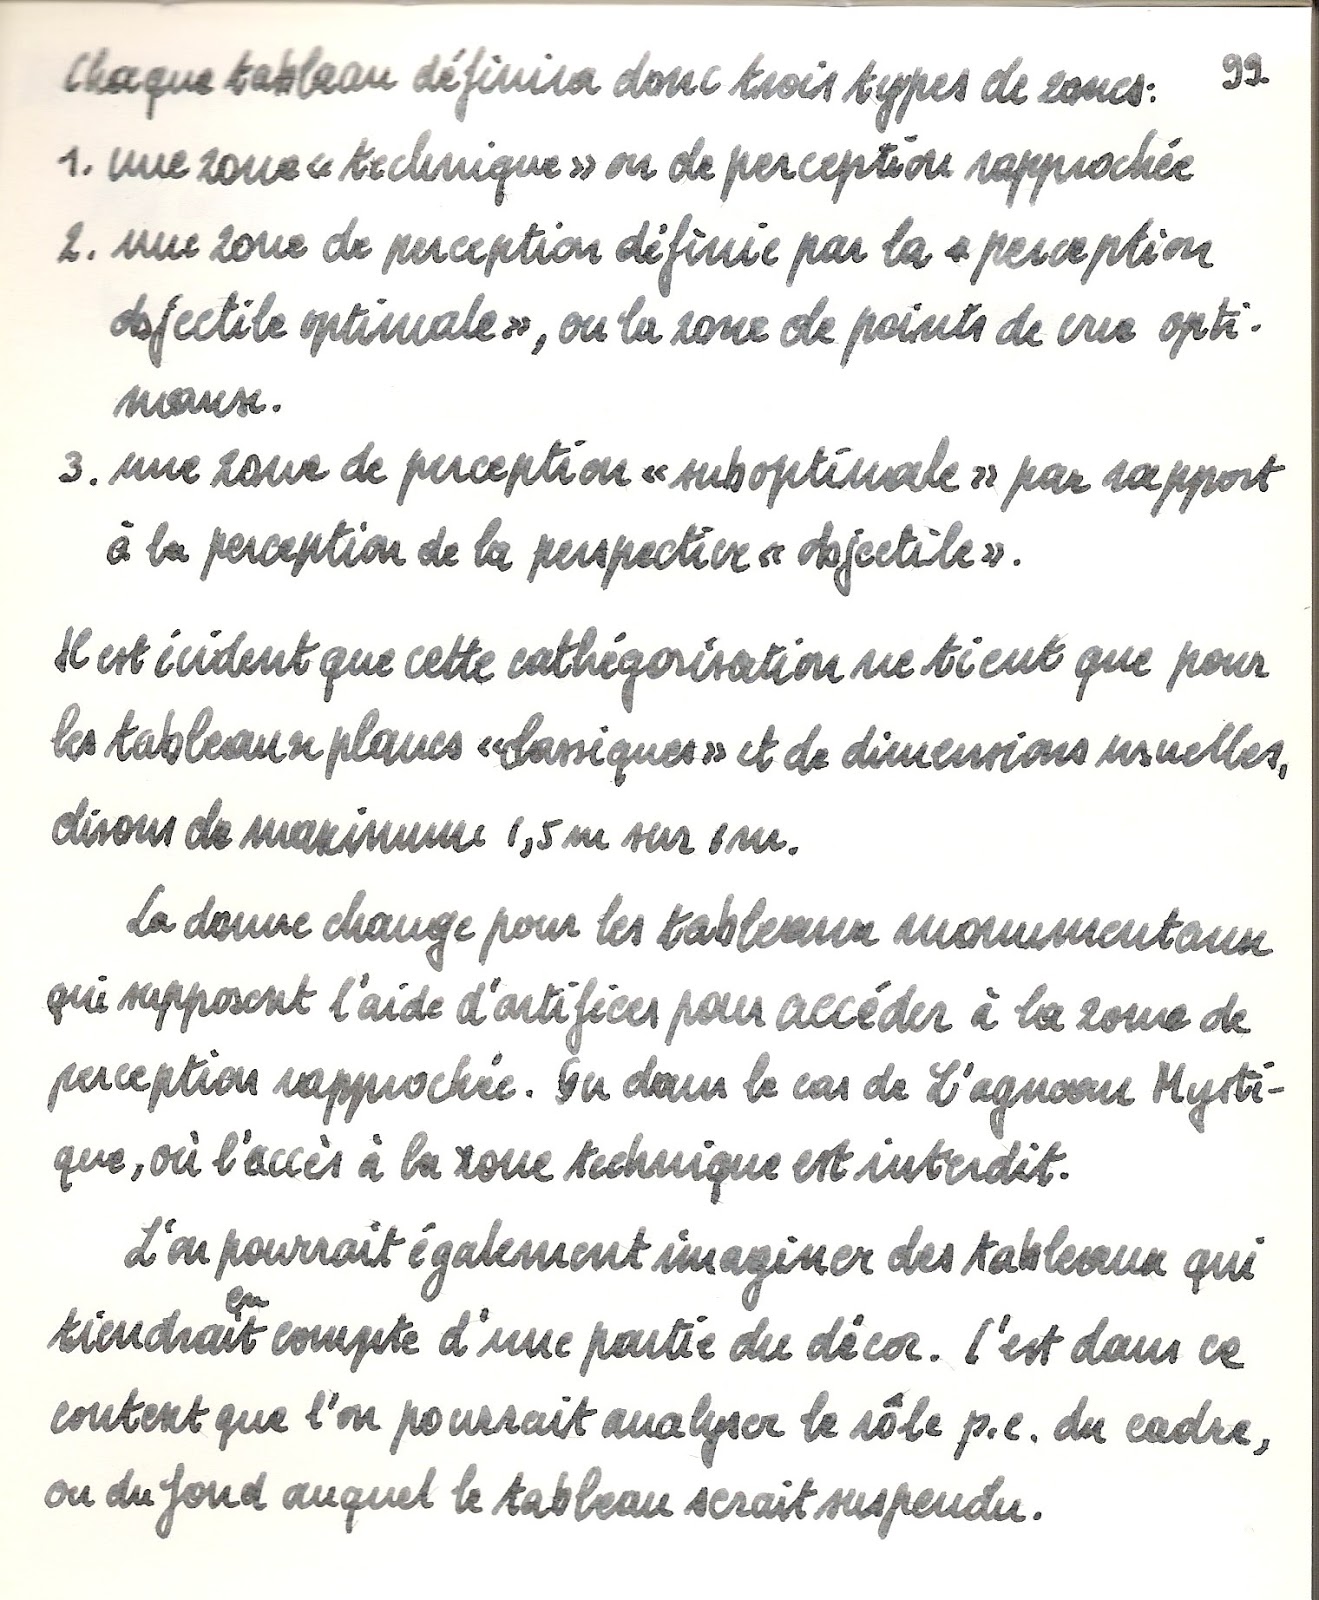 Chaque tableau définira donc trois types de zones: 99.
1. une zone « technique » ou de perception rapprochée
2. une zone de perception définie par la « perception
objectile optimale », ou la zone de points de vue opti-
maux.
3. une zone de perception « suboptimale » par rapport
à la perception de la perspective « objectile ».
Il est évident que cette cathégorisation ne tient que pour
les tableaux planes « classiques » et de dimensions usuelles,
disons de maximum 1,5 m sur 1 m.
La donne change pour les tableaux monumentaux
qui supposent l'aide d'artifices pour accéder à la zone de
perception rapprochée. Ou dans le cas de L'agneau Mysti-
que, où l'accès à la zone technique est interdit.
L'on pourrait également imaginer des tableaux qui
en
tiendrait compte d'une partie du décor. C'est dans ce
context que l'on pourrait analyser le rôle p.e. du cadre,
ou du fond auquel le tableau serait suspendu.